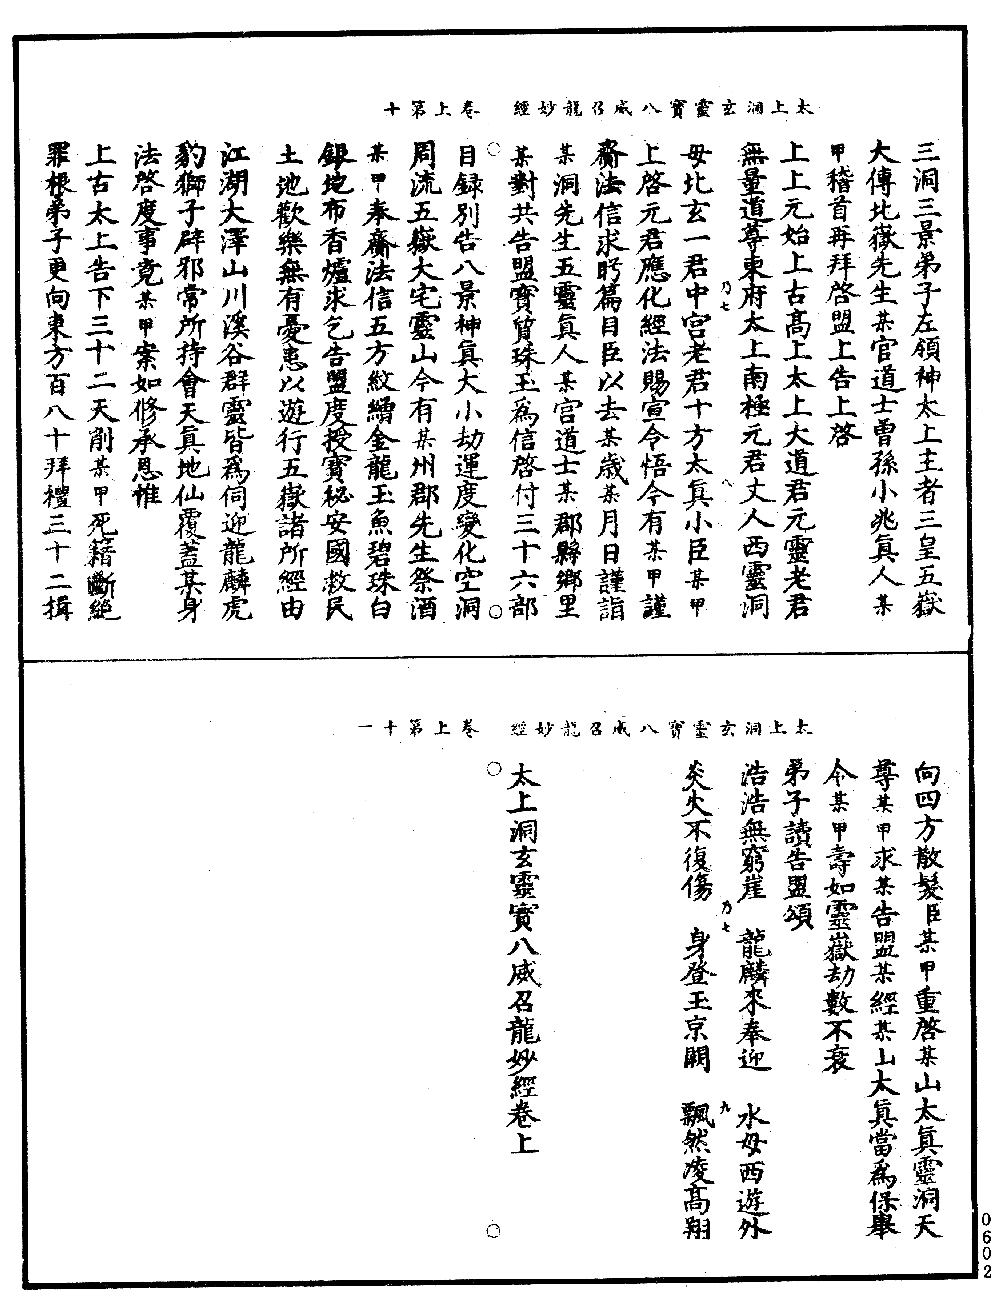 太上洞玄靈寶八威召龍妙經　卷上第十
三洞三景弟子左領神太上主者三皇五嶽
大傳北嶽先生某官道士曹孫小兆真人某
甲稽首再拜啓盟上告上啓
上上元始上古高上太上大道君元靈老君
無量道尊東府太上南極元君丈人西靈洞
母北玄一君中宮老君十方太真小臣某甲
上啓元君應化經法賜宣令悟今有某甲謹
齎法信求盻篇目臣以去某歲某月日謹詣
某洞先生五靈真人某宮道士某郡縣鄉里
某對共告盟寶質珠玉爲信啓付三十六部
目録別告八景神真大小劫運度變化空洞
周流五嶽大宅靈山今有某州郡先生祭酒
某甲奉齎法信五方紋繒金龍玉魚碧珠白
銀地布香爐求乞告盟度授寶秘安國救民
土地歡樂無有憂患以遊行五嶽諸所經由
江湖大澤山川溪谷群靈皆爲伺迎龍麟虎
豹獅子辟邪常所持會天真地仙覆蓋某身
法啓度事竟某甲案如修承恩惟
上古太上告下三十二天削某甲死籍斷絶
罪根弟子更向東方百八十拜禮三十二揖
乃七
八
太上洞玄靈寶八威召龍妙經　卷上第十一
向四方散髮臣某甲重啓某山太真靈洞天
尊某甲求某告盟某經某山太真當爲保舉
令某甲壽如靈嶽劫數不衰
弟子讀告盟頌
浩浩無窮崖　龍麟來奉迎　水母西遊外
炎火不復傷　身登玉京闕　飄然凌高翔
乃七
九
太上洞玄靈寶八威召龍妙經卷上
0602